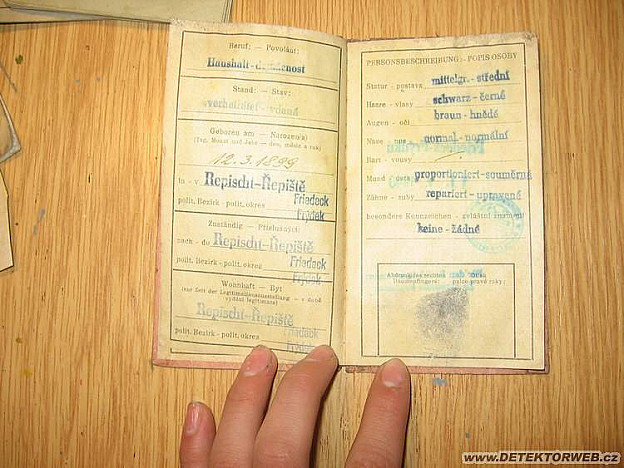 Beruf: — Povolání:
Haushalt-domácnost
Stand: — Stav:
verheiratet - vdaná
Geboren am — Narozen(a)
(Tag, Monat und Jahr — den, měsíc a rok)
12. 3. 1899
in - v Repischt-Řepiště
polit. Bezirk - polit. okres Friedeck
Frýdek
Zuständig — Příslušný:
nach - do Repischt-Řepiště
polit. Bezirk - polit. okres Friedeck
Frýdek
Wohnhaft — Byt
(zur Zeit der Legitimationsausstellung - v době
vydání legitimace)
Repischt-Řepiště
polit. Bezirk - polit. okres Friedeck
Frýdek
PERSONSBESCHREIBUNG - POPIS OSOBY
Statur - postava mittelgr. - střední
Haare - vlasy schwarz - černé
Augen - oči braun - hnědé
Nase - nos normal - normální
Bart - vousy
Mund - ústa proportioniert - souměrná
Zähne - zuby repariert - upravené
besondere Kennzeichen - zvláštní znamení
keine - žádné
Abdruck des rechten
Daumenfingers: palce pravé ruky:
www.DETEKTORWEB.cz